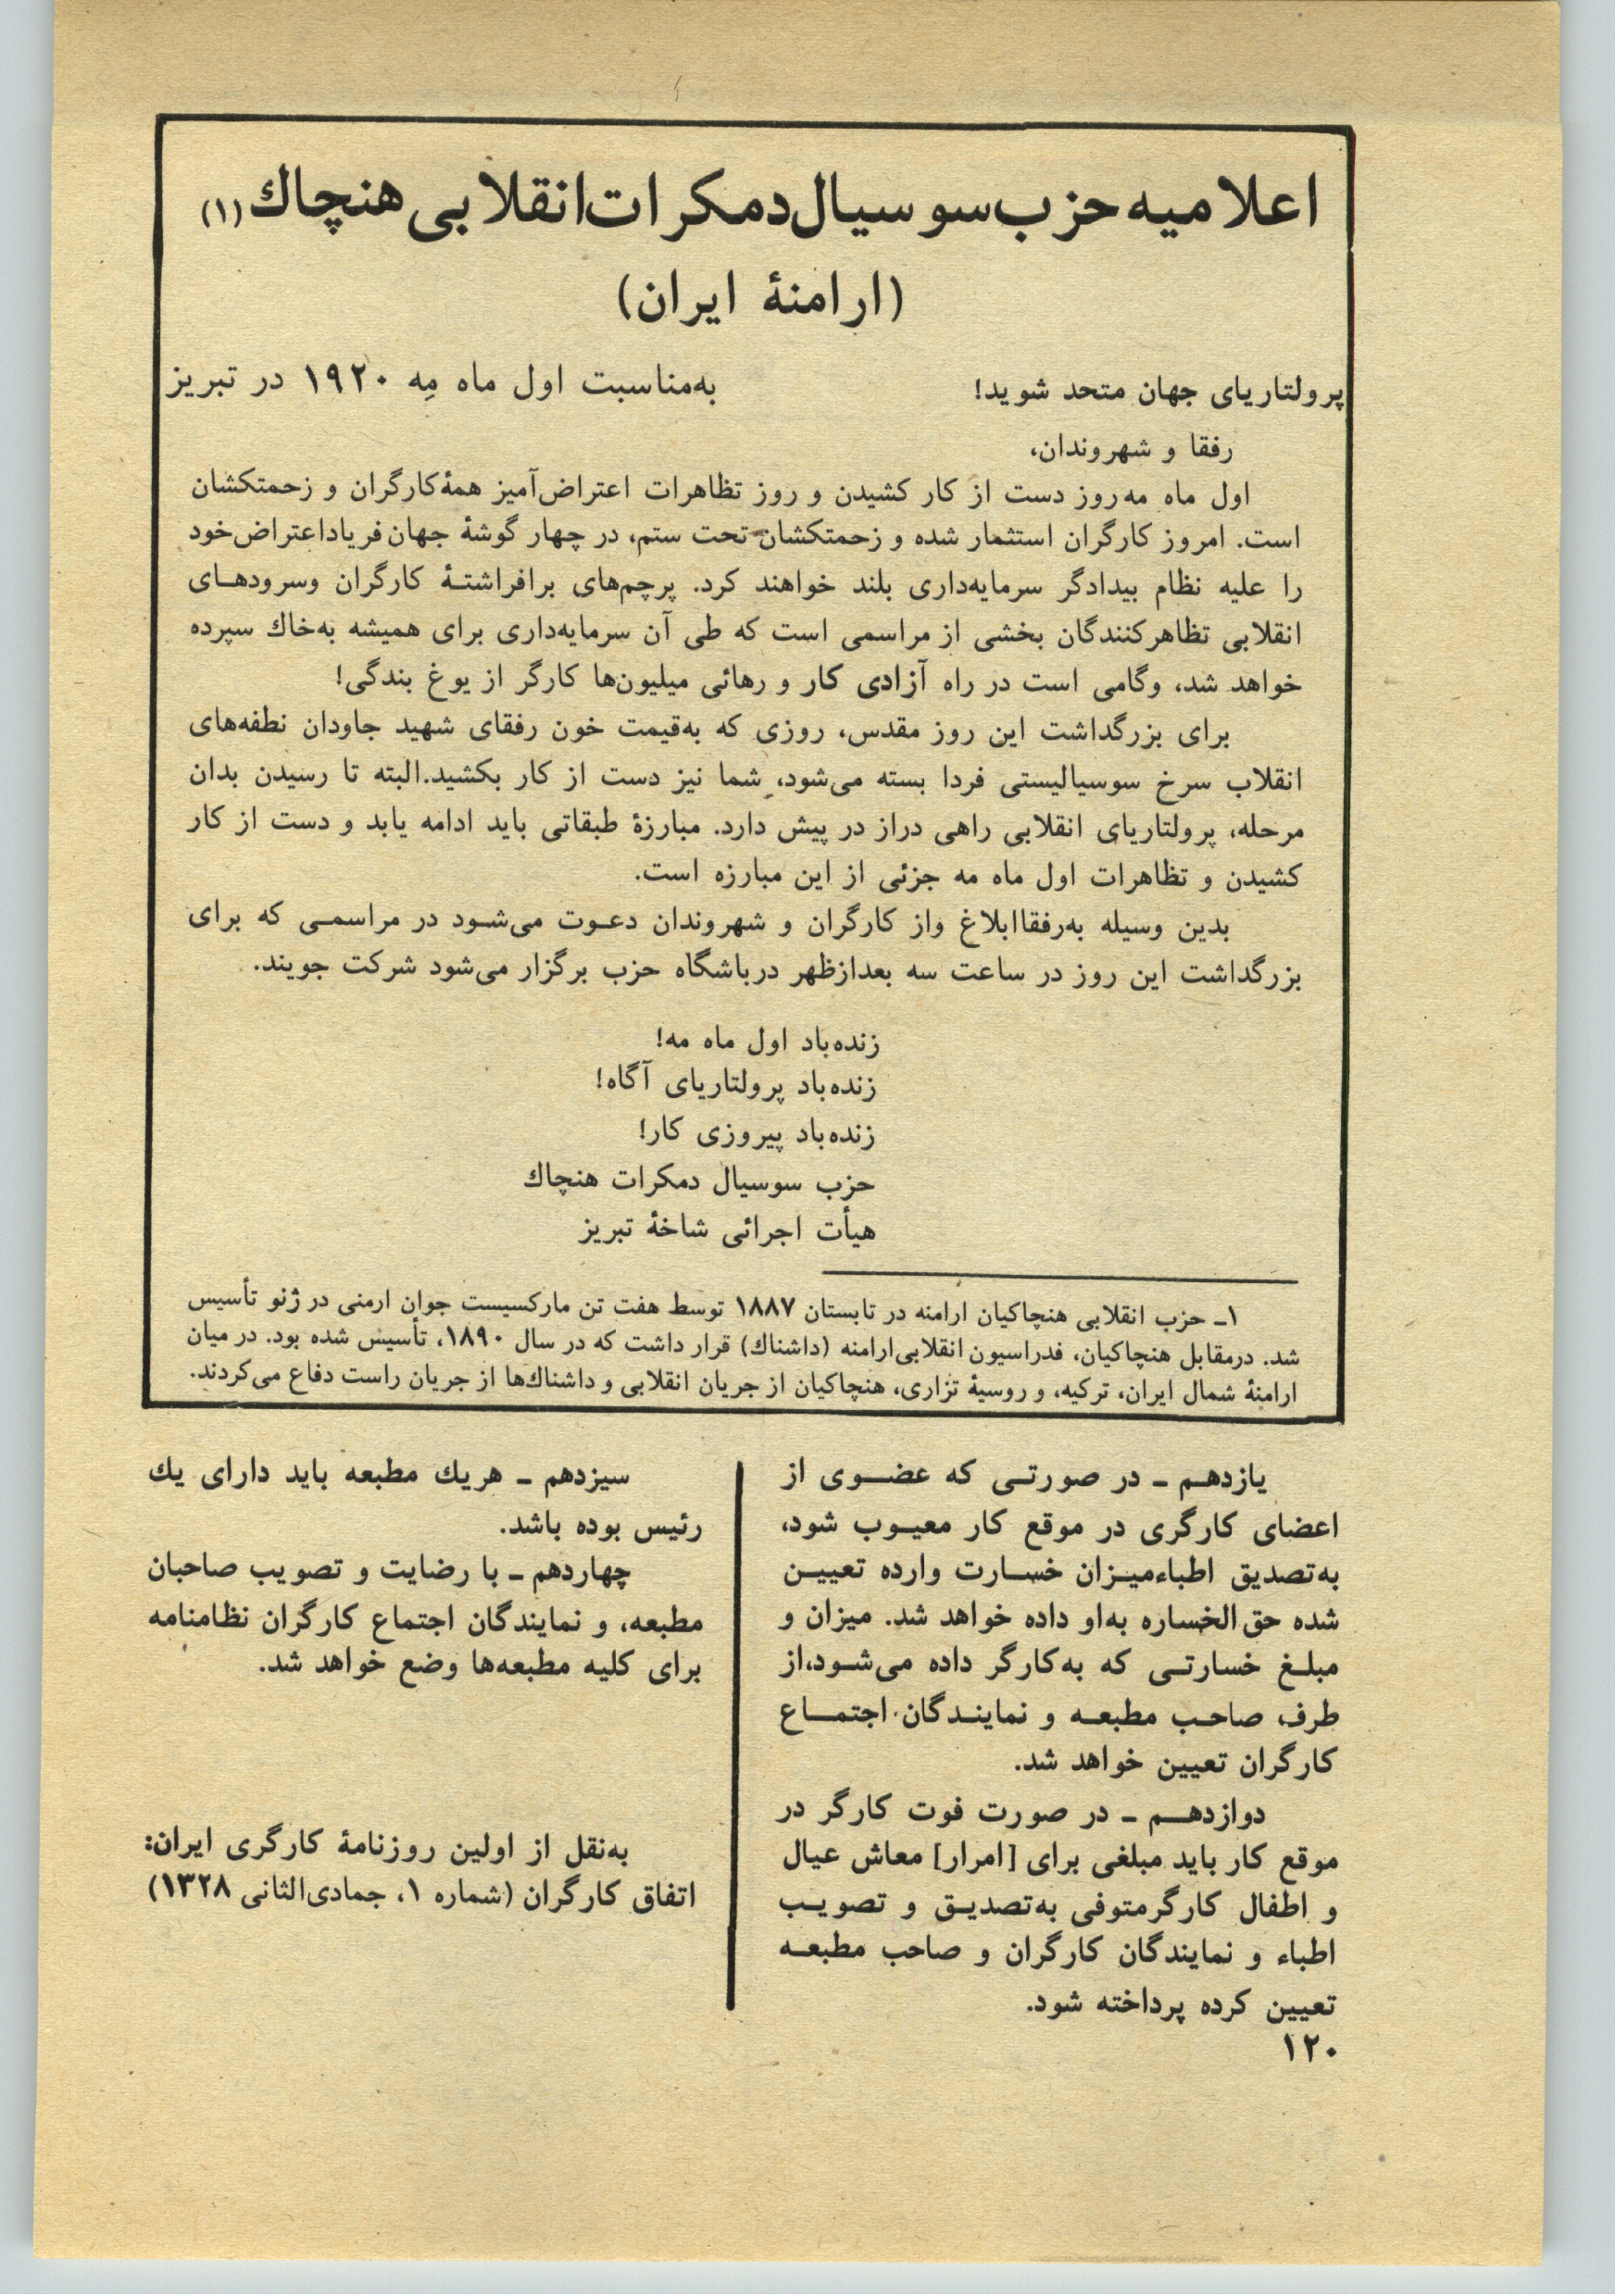 اعلامیه حزب سوسیال دمکرات انقلابی هنچاك (۱)
(ارامنهٔ ایران)
پرولتاریای جهان متحد شوید!
به‌مناسبت اول ماه مِه ۱۹۲۰ در تبریز
رفقا و شهروندان،
اول ماه مه روز دست از کار کشیدن و روز تظاهرات اعتراض‌آمیز همهٔ کارگران و زحمتکشان
است. امروز کارگران استثمار شده و زحمتکشان تحت ستم، در چهار گوشهٔ جهان فریاد اعتراض خود
را علیه نظام بیدادگر سرمایه‌داری بلند خواهند کرد. پرچم‌های برافراشتـهٔ کارگران وسرودهـای
انقلابی تظاهرکنندگان بخشی از مراسمی است که طی آن سرمایه‌داری برای همیشه به‌خاك سپرده
خواهد شد، وگامی است در راه آزادی کار و رهائی میلیون‌ها کارگر از یوغ بندگی!
برای بزرگداشت این روز مقدس، روزی که به‌قیمت خون رفقای شهید جاودان نطفه‌های
انقلاب سرخ سوسیالیستی فردا بسته می‌شود، شما نیز دست از کار بکشید. البته تا رسیدن بدان
مرحله، پرولتاریای انقلابی راهی دراز در پیش دارد. مبارزهٔ طبقاتی باید ادامه یابد و دست از کار
کشیدن و تظاهرات اول ماه مه جزئی از این مبارزه است.
بدین وسیله به‌رفقا ابلاغ واز کارگران و شهروندان دعـوت می‌شـود در مراسمـی که برای
بزرگداشت این روز در ساعت سه بعدازظهر درباشگاه حزب برگزار می‌شود شرکت جویند.
زنده‌باد اول ماه مه!
زنده‌باد پرولتاریای آگاه!
زنده‌باد پیروزی کار!
حزب سوسیال دمکرات هنچاك
هیأت اجرائی شاخهٔ تبریز
۱ـ حزب انقلابی هنچاکیان ارامنه در تابستان ۱۸۸۷ توسط هفت تن مارکسیست جوان ارمنی در ژنو تأسیس
شد. درمقابل هنچاکیان، فدراسیون انقلابی‌ارامنه (داشناك) قرار داشت که در سال ۱۸۹۰، تأسیس شده بود. در میان
ارامنهٔ شمال ایران، ترکیه، و روسیهٔ تزاری، هنچاکیان از جریان انقلابی و داشناك‌ها از جریان راست دفاع می‌کردند.
یازدهـم ـ در صورتـی که عضـوی از
اعضای کارگری در موقع کار معیـوب شود،
به‌تصدیق اطباء میـزان خسـارت وارده تعییـن
شده حق‌الخساره به‌او داده خواهد شد. میزان و
مبلـغ خسارتـی که به‌کارگر داده می‌شـود، از
طرف صاحـب مطبعـه و نماینـدگان اجتمـاع
کارگران تعیین خواهد شد.
دوازدهـم ـ در صورت فوت کارگر در
موقع کار باید مبلغی برای [امرار] معاش عیال
و اطفال کارگرمتوفی به‌تصدیـق و تصویـب
اطباء و نمایندگان کارگران و صاحب مطبعـه
تعیین کرده پرداخته شود.
۱۲۰
سیزدهم ـ هریك مطبعه باید دارای یك
رئیس بوده باشد.
چهاردهم ـ با رضایت و تصویب صاحبان
مطبعه، و نمایندگان اجتماع کارگران نظامنامه
برای کلیه مطبعه‌ها وضع خواهد شد.
به‌نقل از اولین روزنامهٔ کارگری ایران:
اتفاق کارگران (شماره ۱، جمادی‌الثانی ۱۳۲۸)